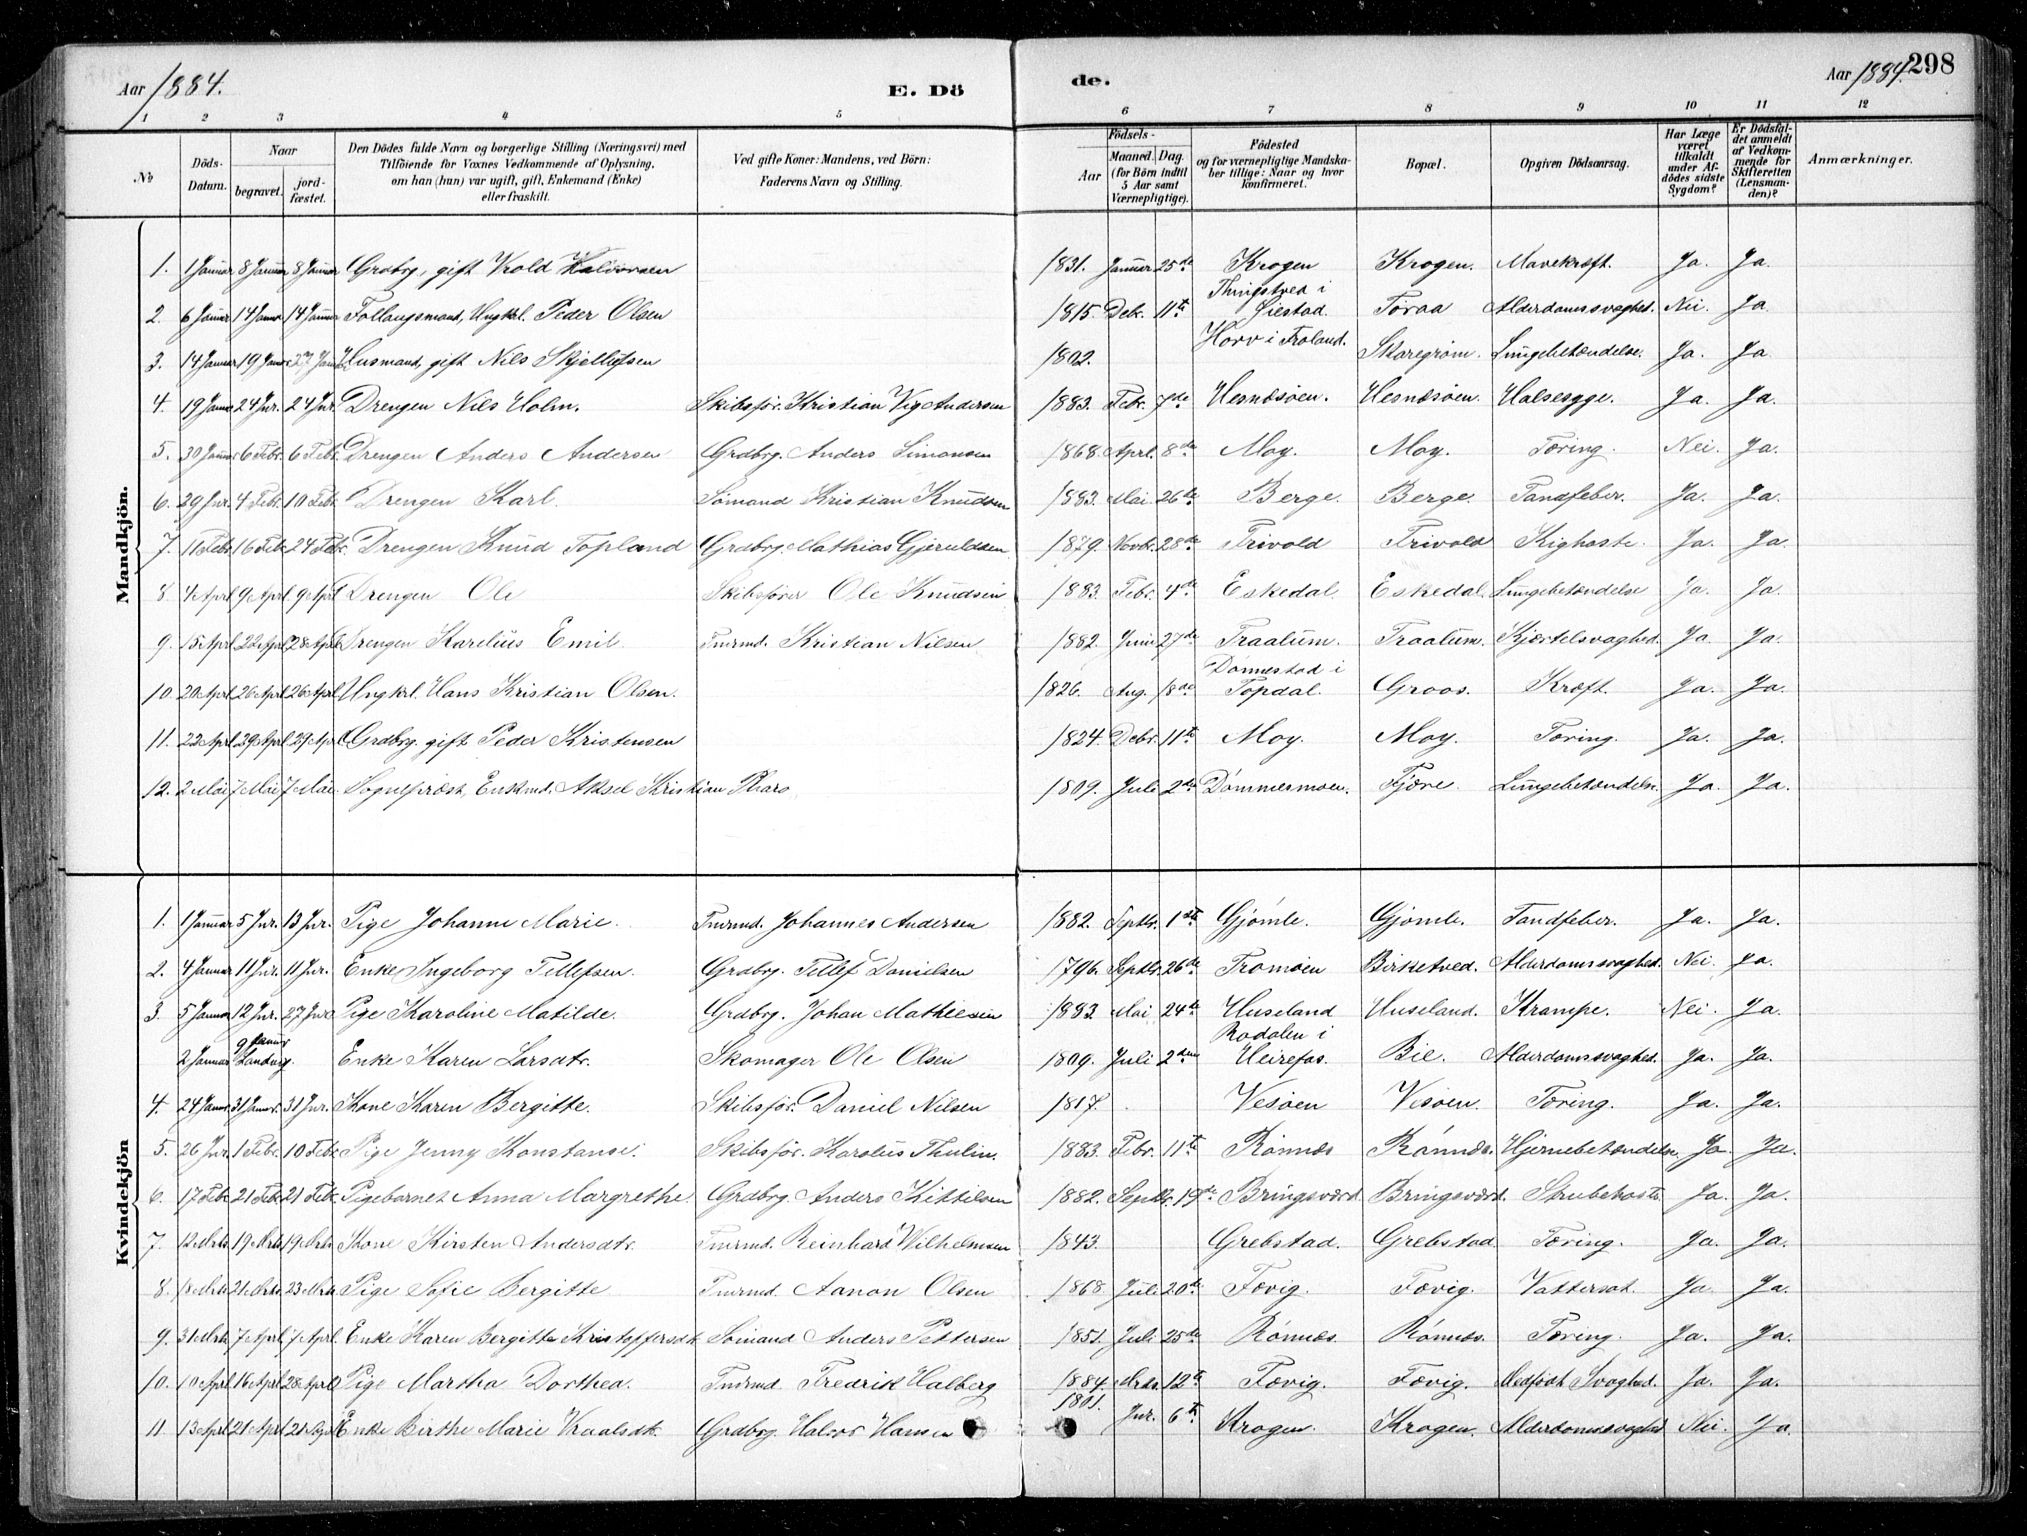 Aar 1884. E. Dö de. Aar 1884. 298
1 2 3 4 5 6 7 8 9 10 11 12
No
Döds-Datum.
Naar
begravet.
jord-fæstet.
Den Dödes fulde Navn og borgerlige Stilling (Næringsvei) med
Tilföiende for Voxnes Vedkommende af Oplysning,
om han (hun) var ugift, gift, Enkemand (Enke)
eller fraskilt.
Ved gifte Koner: Mandens, ved Börn:
Faderens Navn og Stilling.
Födsels-
Aar
Maaned. Dag.
(for Börn indtil
5 Aar samt
Værnepligtige).
Födested
og for værnepligtige Mandska-
ber tillige: Naar og hvor
konfirmeret.
Bopæl.
Opgiven Dödsaarsag.
Har Læge
været
tilkaldt
under Af-
dödes sidste
Sygdom?
Er Dödsfal-
det anmeldt
af Vedkom-
mende for
Skifteretten
(Lensman-
den)?
Anmærkninger.
Mandkjön.
1. 1 Januar 8 Januar 8 Januar Grdbrg, gift Krold Halvorsen 1831. Januar 25de Krogen Krogen. Mavekræft. Ja. Ja.
2. 6 Januar 14 Januar 14 Januar Follaugsmand, Ungkrl. Peder Olsen 1815. Debr. 11te Thingstved i Øiestad. Toraa Alderdomssvaghed. Nei. Ja.
3. 14 Januar 19 Januar 27 Januar Husmand, gift Nils Skjellefsen 1802. Horv i Froland. Skaregrøm. Lungebetændelse. Ja. Ja.
4. 19 Januar 24 Jnr. 24 Jnr. Drengen Nils Holm. Skibsför. Kristian Vig Andersen 1883. Febr. 7de Hesnæsøen. Hesnæsøen. Halsesyge. Ja. Ja.
5. 30 Januar 6 Febr. 6 Febr. Drengen Anders Andersen Grdbrg. Anders Simonsen 1868. Aprl. 8de Moy. Moy. Tæring. Nei. Ja.
6. 29 Jnr. 4 Febr. 10 Febr. Drengen Karl. Sömand Kristian Knudsen 1883. Mai 26de Berge. Berge. Tandfeber. Ja. Ja.
7. 11 Febr. 16 Febr. 24 Febr. Drengen Knud Topland Grdbrg. Mathias Gjeruldsen 1879. Novbr. 28de Trivold Trivold Kighoste. Ja. Ja.
8. 4 Aprl 9 Aprl 9 Aprl Drengen Ole Skibsfører Ole Knudsen 1883. Febr. 4de Eskedal. Eskedal. Lungebetændelse Ja. Ja.
9. 15 Aprl 22 Aprl 28 Aprl Drengen Karelius Emil. Tmrmd. Kristian Nilsen 1882. Juni 27de Traalum. Traalum. Kjertelsvaghed. Ja. Ja.
10. 20 Aprl 26 Aprl 26 Aprl Ungkrl. Hans Kristian Olsen. 1826. Aug. 18de Donnestad i Topdal. Groos. Kræft. Ja. Ja.
11. 22 Aprl 29 Aprl 29 Aprl Grdbrg. gift Peder Kristensen 1824. Debr. 11te Moy. Moy. Tæring. Ja. Ja.
12. 2 Mai 7 Mai 7 Mai. Sognepræst, Enkmd. Aksel Kristian Tharo 1809. Juli 2de Dømmesmoen. Fjære. Lungebetændelse. Ja. Ja.
Kvindekjön
1. 1 Januar 5 Jnr. 13 Jnr. Pige Johanne Marie. Tmrmd. Johannes Andersen 1882. Septbr. 1ste Gjømle. Gjømle. Tandfeber. Ja. Ja.
2. 4 Januar 11 Jnr. 11 Jnr. Enke Ingeborg Tellefsen. Grdbrg. Tellef Danielsen 1796. Septbr. 26de Tromøen Birketved. Alderdomssvaghed. Nei. Ja.
3. 5 Januar 12 Jnr. 27 Jnr. Pige Karoline Matilde. Grdbrg. Johan Mathiesen 1883 Mai 24de Huseland Huseland. Krampe. Nei. Ja.
2 Januar 9 Januar Landvig. Enke Karen Larsdtr. Skomager Ole Olsen 1809. Juli 2den Rodalen i Heirefos. Bie. Alderdomssvaghed. Ja. Ja.
4. 24 Januar 31 Januar. 31 Jnr. Kone Karen Bergitte. Skibsför. Daniel Nilsen 1817. Vesøen Visøen. Tæring. Ja. Ja.
5. 26 Jnr. 1 Febr. 10 Febr. Pige Jenny Konstanse. Skibsför. Karolus Thulin. 1883. Febr. 11te Rønnæs Rønnæs. Hjernebetændelse. Ja. Ja.
6. 17 Febr. 21 Febr. 21 Febr. Pigebarnet Anna Margrethe. Grdbrg. Anders Kittilsen 1882. Septbr. 19de Bringsværd. Bringsværd. Strubehoste Ja. Ja.
7. 12 Mrts 19 Mrts 19 Mrts Kone Kirsten Andersdtr. Tmrmd. Reinhard Wilhelmsen 1843. Grebstad. Grebstad Tæring. Ja. Ja.
8. 18 Mrts 21 Mrts 23 Mrts Pige Sofie Bergitte Tmrmd. Aanon Olsen 1868. Juli 20de Fævig. Fævig. Vattersot. Ja. Ja.
9. 31 Mrts 7 Aprl 7 Aprl. Enke Karen Bergitte Kristoffersdtr. Sömand Anders Pettersen 1851. Juli 25de Rønnæs. Rønnæs. Tæring. Ja. Ja.
10. 10 Aprl 16 Aprl 28 Aprl Pige Martha Dorthea. Tmrmd. Fredrik Halberg 1884. Mrts. 12te Fævig. Fævig. Medfødt Svaghed. Ja. Ja.
11. 13 Aprl 21 Aprl 21 Aprl Enke Birthe Marie Knudsdtr. Grdbrg. Halvor Hansen 1801. Jnr. 6te Krogen. Krogen. Alderdomssvaghed Nei. Ja.